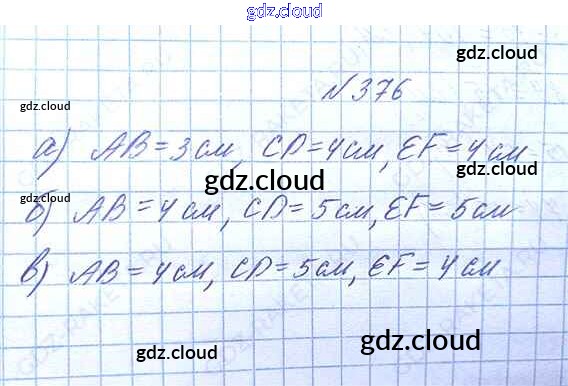 gdz.cloud
gdz.cloud
№376
gdz.cloud
а) AB=3см, CD=4см, EF=4см
gdz.cloud
gdz.cloud
б) AB=4см, CD=5см, EF=5см
в) AB=4см, CD=5см, EF=4см
gdz.cloud
gdz.cloud